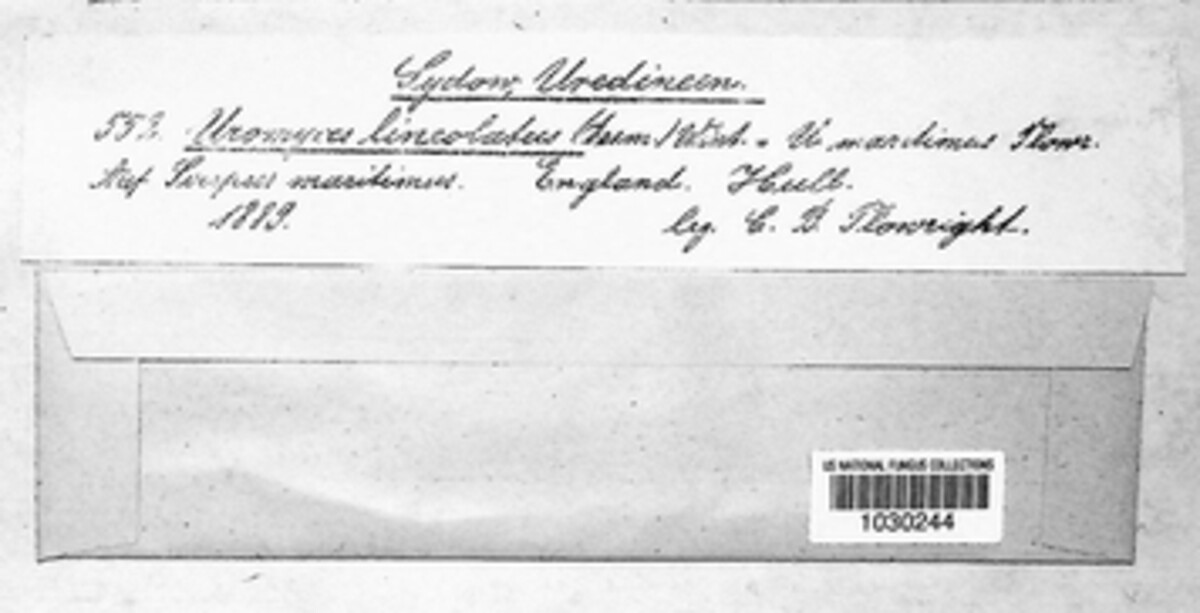 Sydow, Uredineen.
552. Uromyces lineolatus (Desm.) Wint. = U. maritimus Plowr.
Auf Scirpus maritimus. England. Hull.
1889. leg. C. B. Plowright.
US NATIONAL FUNGUS COLLECTIONS
1030244